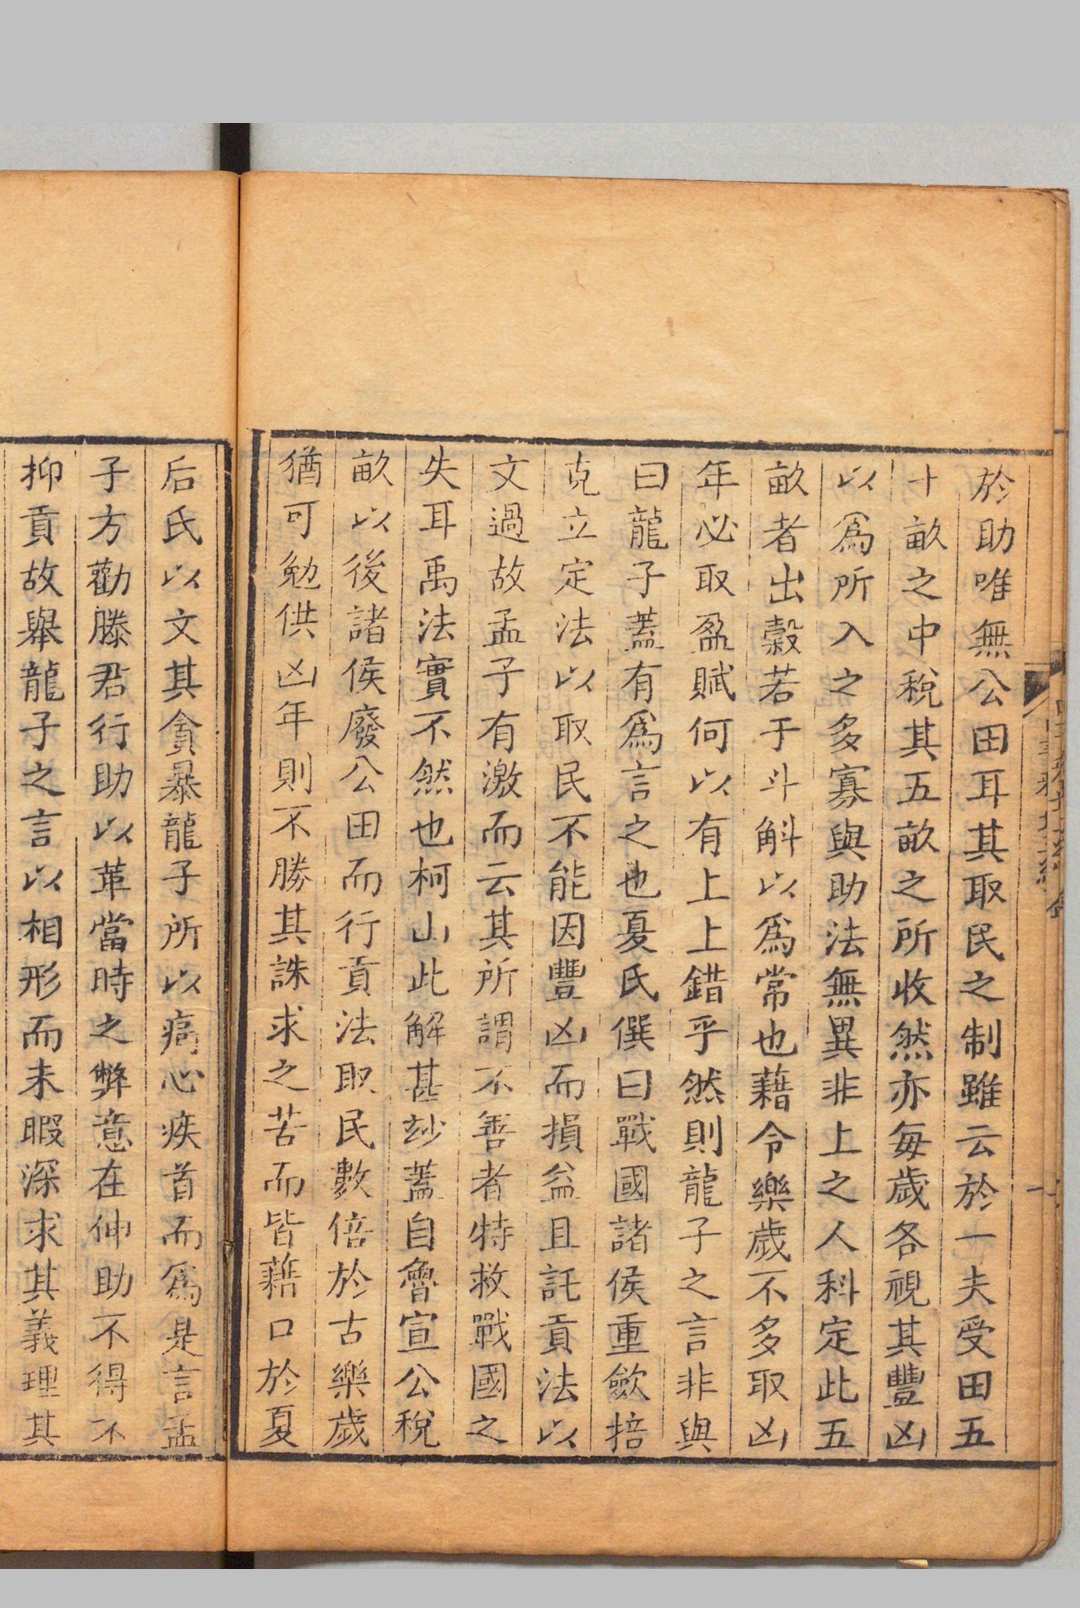 於助唯無公田耳其取民之制雖云於一夫受田五
十畝之中稅其五畝之所收然亦每歲各視其豐凶
以爲所入之多寡與助法無異非上之人科定此五
畝者出穀若于斗斛以爲常也藉令樂歲不多取凶
年必取盈賦何以有上上錯乎然則龍子之言非與
曰龍子蓋有爲言之也夏氏僎曰戰國諸侯重斂掊
克立定法以取民不能因豐凶而損益且託貢法以
文過故孟子有激而云其所謂不善者特救戰國之
失耳禹法實不然也柯山此解甚玅蓋自魯宣公稅
畝以後諸侯廢公田而行貢法取民數倍於古樂歲
猶可勉供凶年則不勝其誅求之苦而皆藉口於夏
后氏以文其貪暴龍子所以痛心疾首而爲是言孟
子方勸滕君行助以革當時之弊意在伸助不得不
抑貢故舉龍子之言以相形而未暇深求其義理其